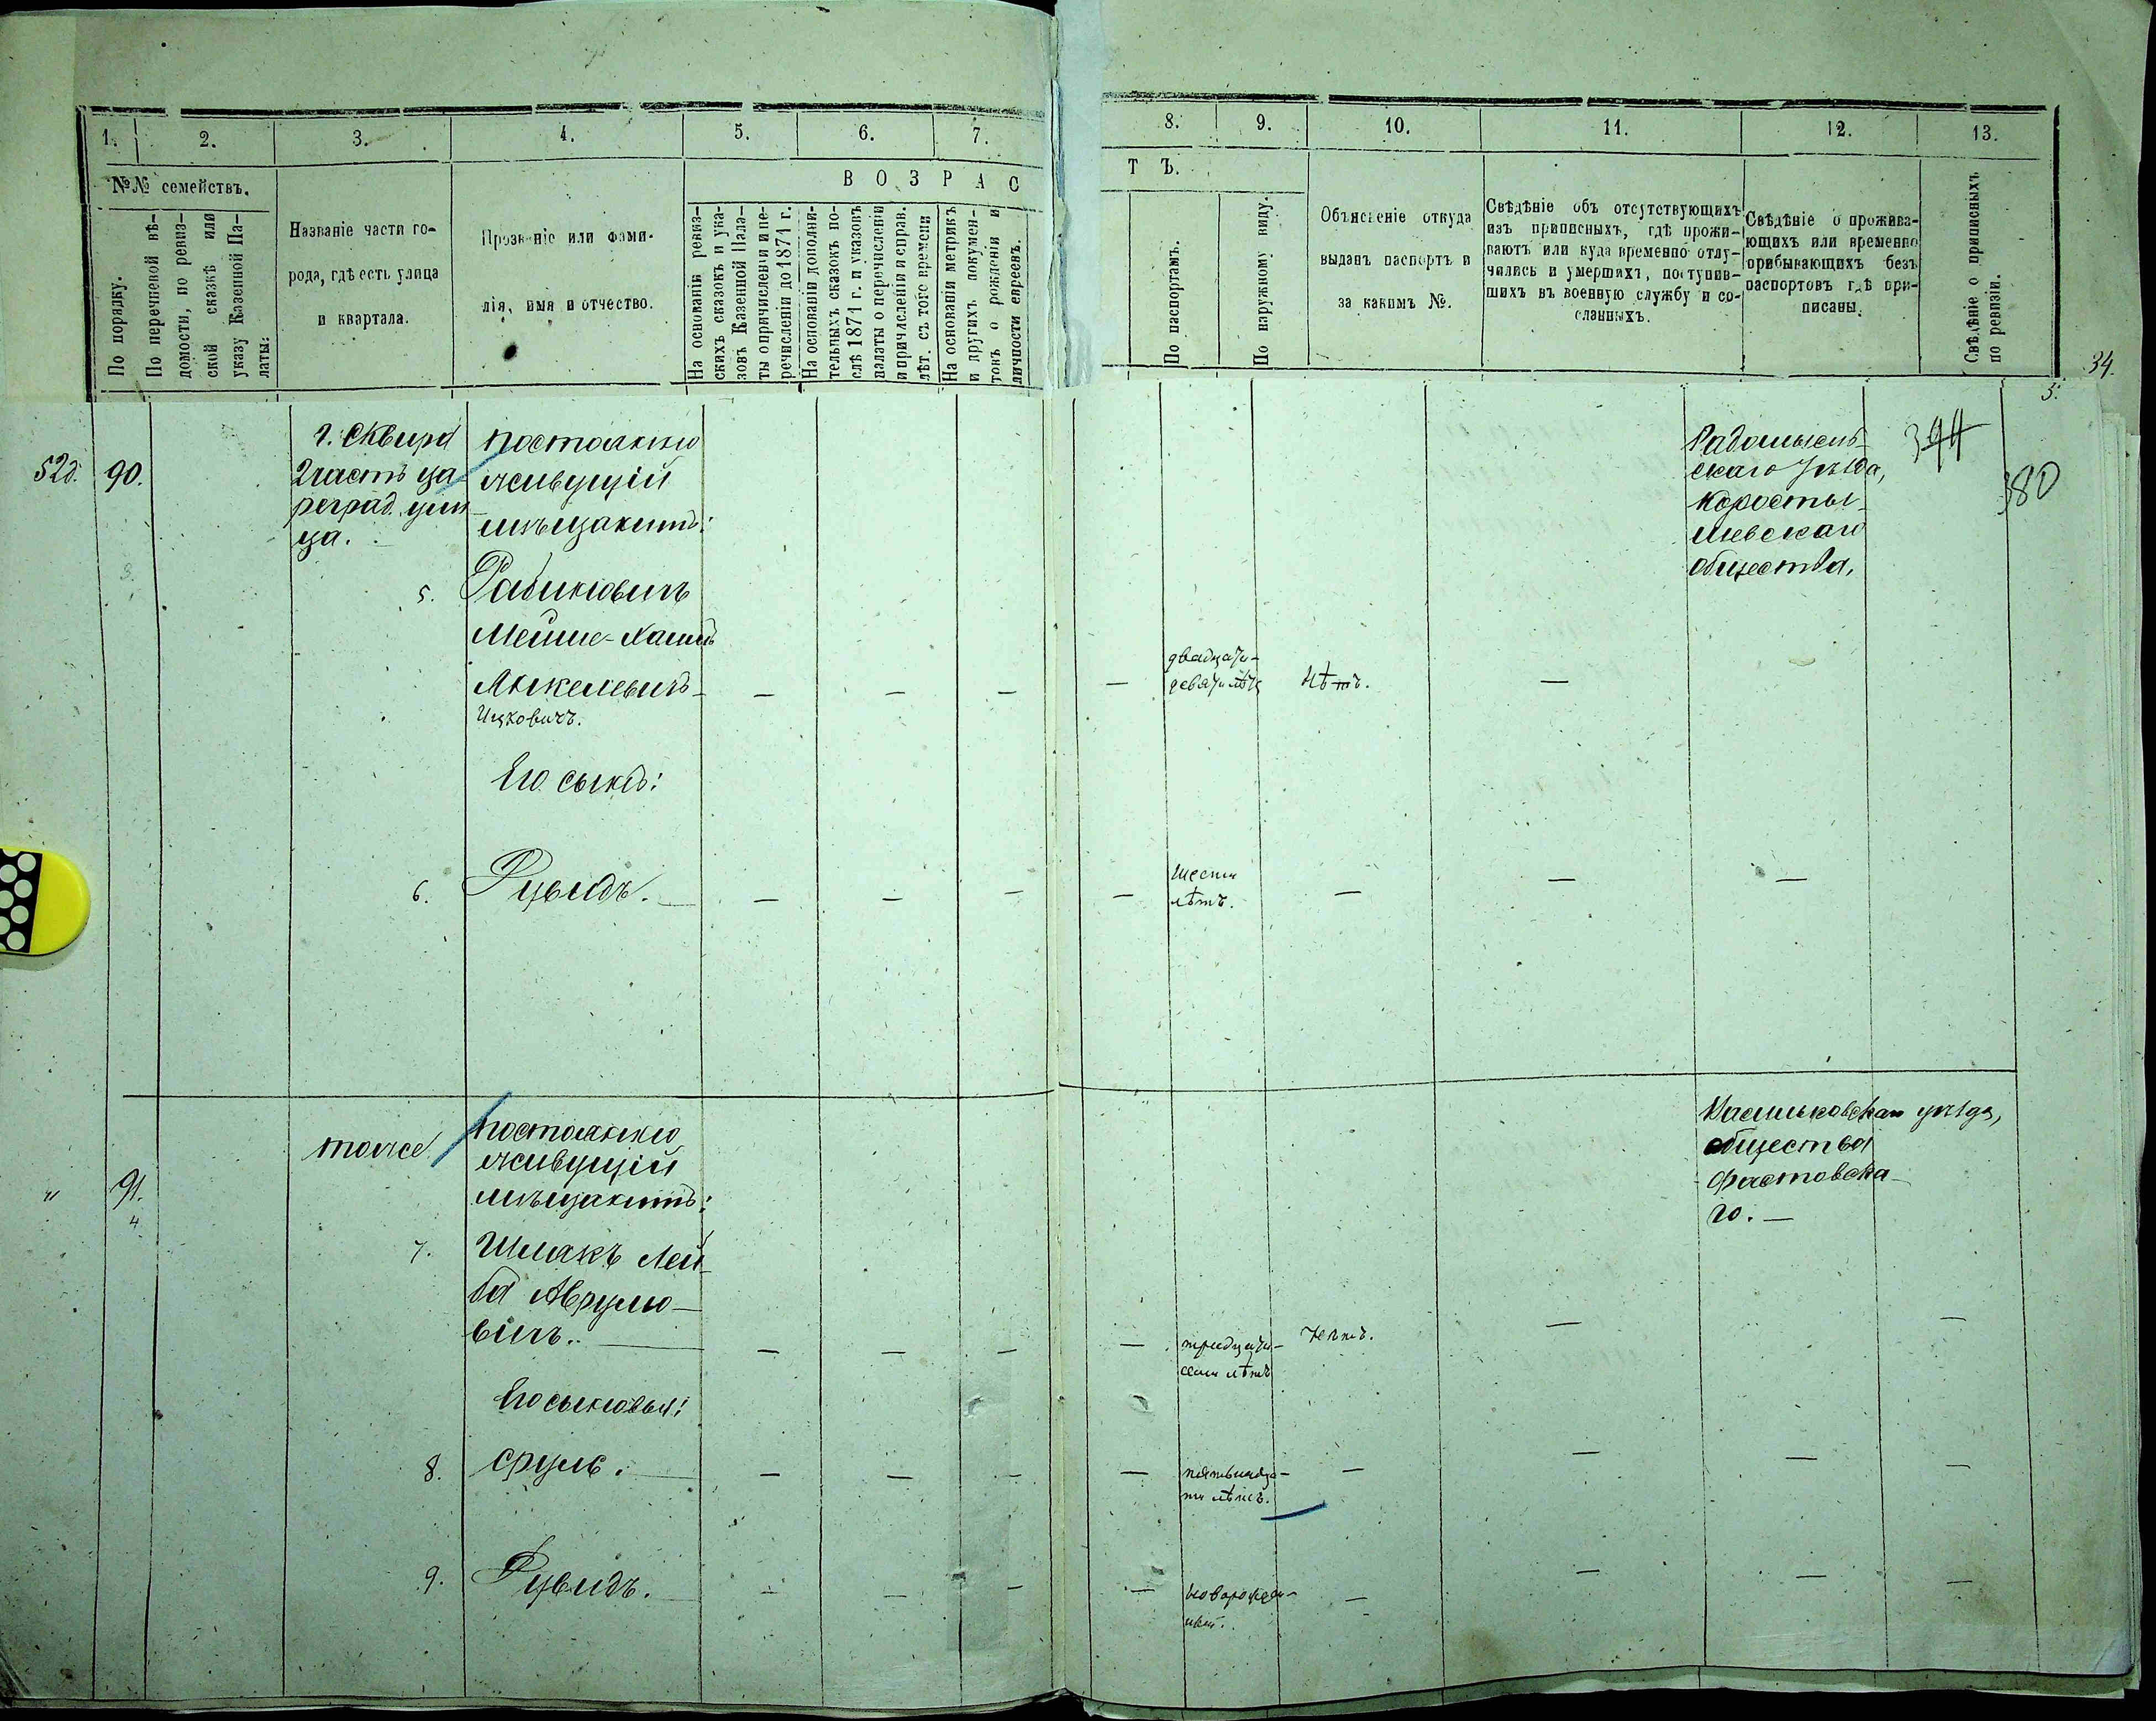 1.
2.
3.
4.
5.
6.
7.
8.
9.
10.
11.
12.
13.
№№ семействъ.
По порядку.
По перечневой вѣ-
домости, по ревиз-
ской сказкѣ или
указу Казенной Па-
латы.
Названіе части го-
рода, гдѣ есть улица
и квартала.
Прозваніе или фами-
лія, имя и отчество.
ВОЗРАС
ТЪ.
На основаніи ревиз-
скихъ сказокъ и ука-
зовъ Казенной Пала-
ты о причисленіи и пе-
речисленіи до 1871 г.
На основаніи дополни-
тельныхъ сказокъ по-
слѣ 1871 г. и указовъ
палаты о перечисленіи
и причисленіи и исправ.
лѣт. съ того времени
На основаніи метрикъ
и другихъ докумен-
товъ о рожденіи и
личности евреевъ.
По паспортамъ.
По наружному виду.
Объясненіе откуда
выданъ паспортъ и
за какимъ №.
Свѣдѣніе объ отсутствующихъ
изъ приписныхъ, гдѣ прожи-
ваютъ или куда временно отлу-
чились и умершихъ, поступив-
шихъ въ военную службу и со-
сланныхъ.
Свѣдѣніе о прожива-
ющихъ или временно
прибывающихъ безъ
паспортовъ гдѣ при-
писаны.
Свѣдѣніе о приписныхъ
по ревизіи.
34.
5.
52д. 90.
г. Сквира
2 часть ца
реград. ули
ца.
постоянно
живущій
мѣщанинъ:
5. Рабиновичъ
Мейше-Хаимъ
Янкелевичъ
Ицковичъ.
двадцати-
девяти лѣтъ
Нѣтъ.
Радомысль-
скаго уѣзда,
Коросты-
шевскаго
общества,
344
380
Его сынъ:
6. Рувидъ.
шести
лѣтъ.
тоже
" 91.
4
постоянно
живущій
мѣщанинъ:
7. Шмакъ Лей-
ба Аврумо-
вичъ.
тридцати-
семи лѣтъ
Нѣтъ.
Васильковскаго уѣзда,
общества
Фастовска-
го.
Его сыновья:
8. Сруль.
пятнадца-
ти лѣтъ.
9. Рувидъ.
новорожден-
ный.